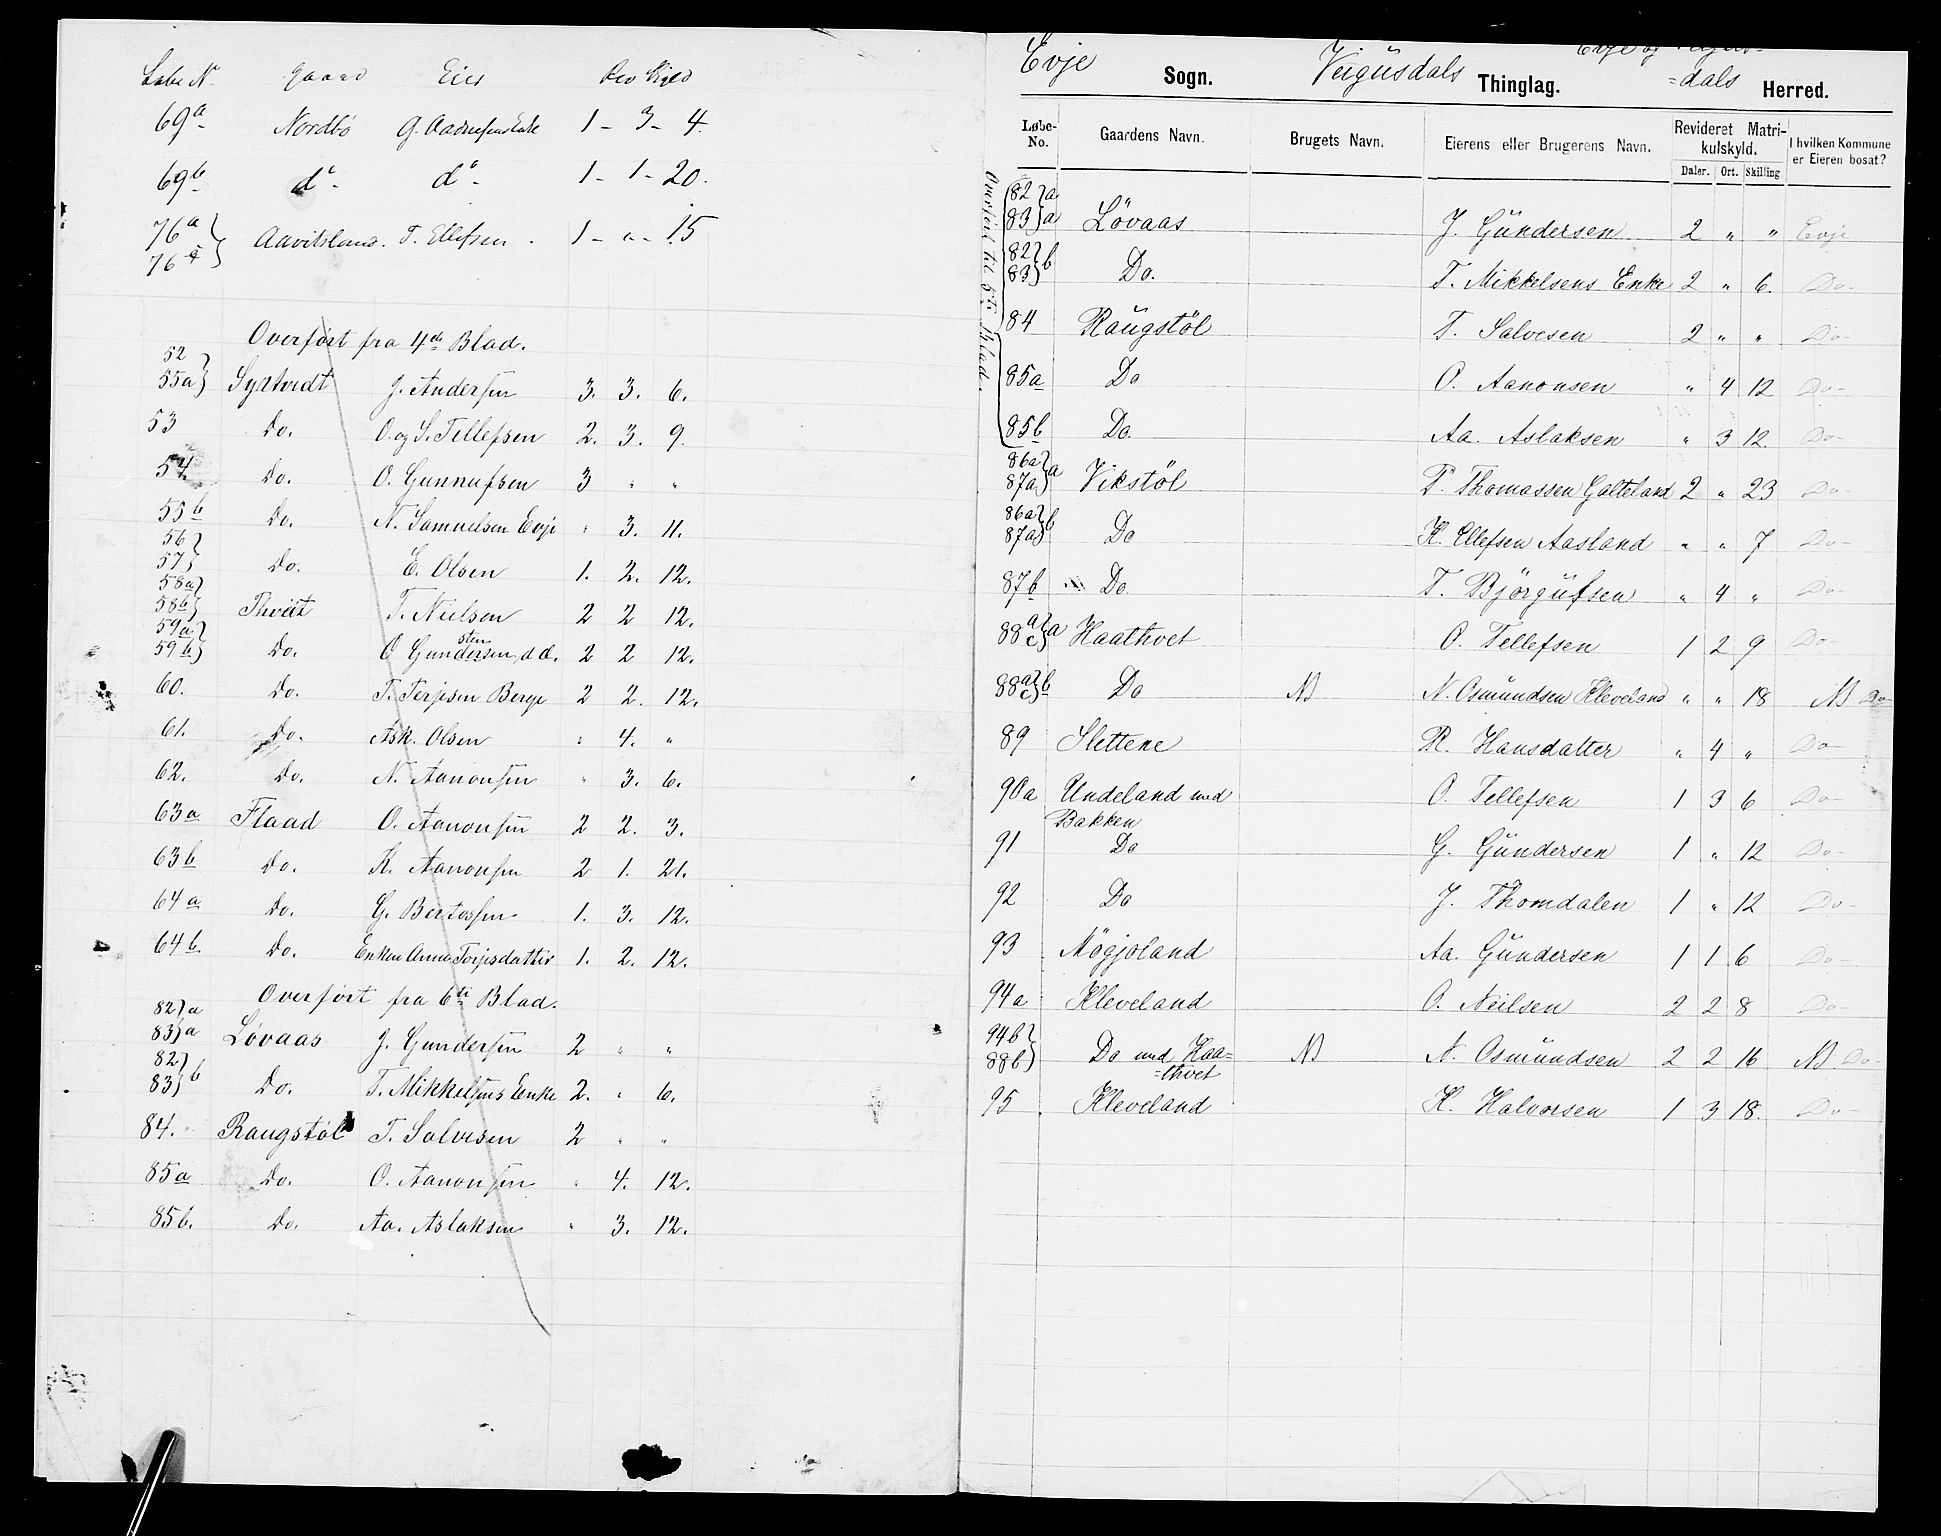 Løbe N. Gaard Eier Rev Skyld
69a Nordbö G. Aadnesens Enke 1 - 3 - 4.
69b do - do - 1 - 1 - 20.
76a
76 } Aavitsland. T. Ellefsen. 1 - " - 15
Overført fra 4de Blad.
52
55a } Syrtvedt J. Andersen 3. 3. 6.
53 Do. O. og S. Tellefsen 2. 3. 9.
54. Do. O. Gunnufsen 3 " "
55b Do. N. Samuelsen Evje " 3. 11.
56
57 } Do. E. Olsen 1. 2. 12.
58a
58b } Thveit T. Nielsen 2 2 12.
59a
59b } Do. O Gundersen, d.æ. 2 2 12.
60. Do. T. Terjesen Berge 2 2. 12.
61. Do. Ask. Olsen " 4. "
62. Do. N. Aanonsen " 3. 6.
63a Flaad O. Aanonsen 2 2. 3.
63b Do. K. Aanonsen 2 1. 21.
64a Do. G. Bertossen 1. 3. 12.
64b. Do. Enken Anne Torjesdatter 1. 2. 12.
Overført fra 6te Blad.
82 } a
83 } a Løvaas J. Gundersen 2 " "
82 }
83 } b Do. T. Mikkelsens Enke 2. " 6.
84. Raugstøl T. Salvesen 2 " "
85a Do. O. Aanonsen " 4. 12.
85b. Do. Aa. Aslaksen " 3. 12.
Evje Sogn. Veigusdals Thinglag. Evje og Veigus-
=dals Herred.
Løbe-No. Gaardens Navn. Brugets Navn. Eierens eller Brugerens Navn. Revideret Matrikulskyld. I hvilken Kommune er Eieren bosat?
Daler. Ort. Skilling
Overført til 5te Blad.
82 } a
83 } a Lövaas J. Gündersen 2 " " Evje
82 }
83 } b Do. T. Mikkelsens Enke 2 " 6. Do-
84 Raügstöl T. Salvesen 2 " " Do-
85a Do O. Aanonsen " 4 12 Do-
85b Do. Aa. Aslaksen " 3 12. Do-
86a }
87a } a Vikstöl P. Thomassen Galteland 2 " 23 Do-
86a }
87a } b Do K. Ellefsen Aasland " " 7 Do-
87b Do T. Björgüfsen " 4 " Do-
88 a c } a Haathvet O. Tellefsen 1 2 9 Do-
88 a c } b Do NB N. Osmündsen Kleveland " " 18 NB Do-
89 Slettene R. Hansdatter " 4 " Do-
90a Undeland med
Bakken O. Tellefsen 1 3 6 Do-
91 Do G. Gündersen 1 " 12 Do-
92 Do J. Thomdalen 1 " 12 Do-
93 Nögjoland Aa. Gündersen 1 1 6 Do-
94a Kleveland O. Neilsen 2 2 8 Do-
94b }
88b } Do med Haa=
=thvet NB N. Osmündsen 2 2 16 NB Do-
95 Kleveland K. Halvorsen 1 3 18. Do-